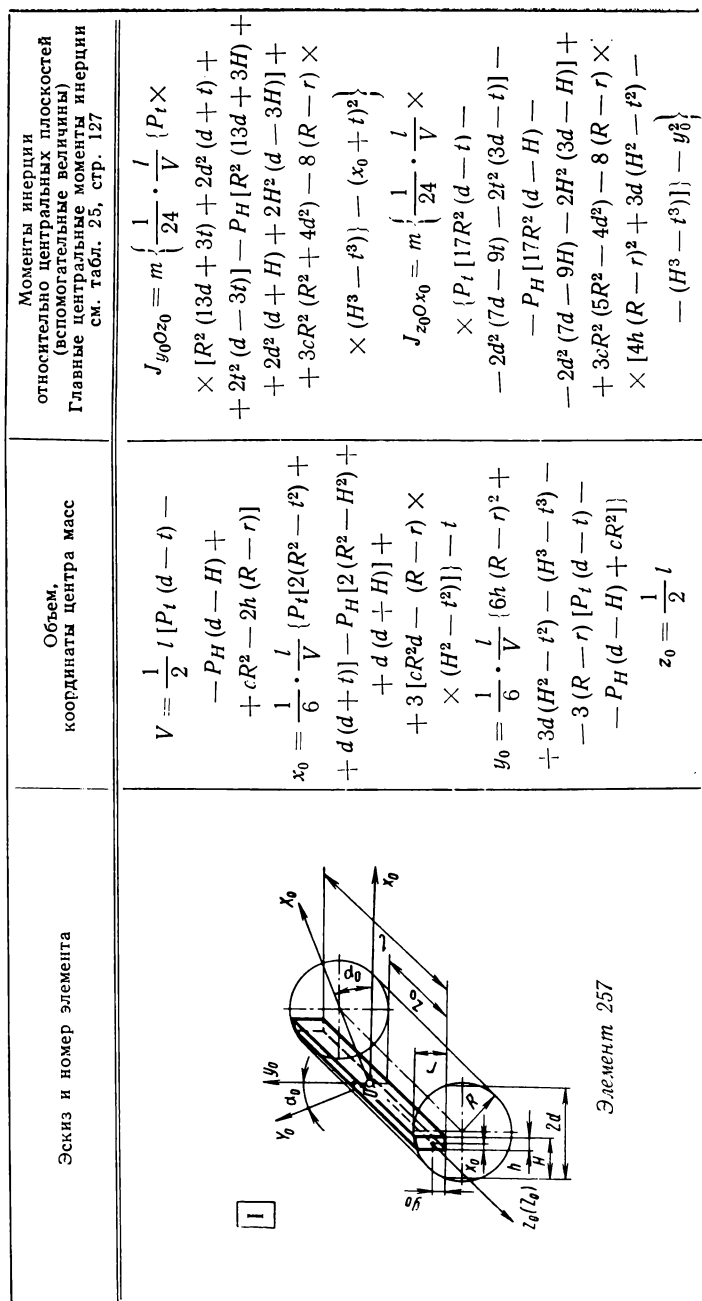 Эскиз и номер элемента
Объем,
координаты центра масс
Моменты инерции
относительно центральных плоскостей
(вспомогательные величины)
Главные центральные моменты инерции
см. табл. 25, стр. 127
I
Y₀
α₀
y₀
X₀
ρ₀
x₀
O
l
z₀
r
R
y₀
x₀
h
H
2d
z₀(Z₀)
Элемент 257
V = 1/2 l [Pₜ (d − t) −
− P_H (d − H) +
+ cR² − 2h (R − r)]
x₀ = 1/6 · l/V {Pₜ [2(R² − t²) +
+ d (d + t)] − P_H [2 (R² − H²) +
+ d (d + H)] +
+ 3 [cR²d − (R − r) ×
× (H² − t²)]} − t
y₀ = 1/6 · l/V {6h (R − r)² +
+ 3d (H² − t²) − (H³ − t³) −
− 3 (R − r) [Pₜ (d − t) −
− P_H (d − H) + cR²]}
z₀ = 1/2 l
J_y₀Oz₀ = m {1/24 · l/V {Pₜ ×
× [R² (13d + 3t) + 2d² (d + t) +
+ 2t² (d − 3t)] − P_H [R² (13d + 3H) +
+ 2d² (d + H) + 2H² (d − 3H)] +
+ 3cR² (R² + 4d²) − 8 (R − r) ×
× (H³ − t³)} − (x₀ + t)²}
J_z₀Ox₀ = m {1/24 · l/V ×
× {Pₜ [17R² (d − t) −
− 2d² (7d − 9t) − 2t² (3d − t)] −
− P_H [17R² (d − H) −
− 2d² (7d − 9H) − 2H² (3d − H)] +
+ 3cR² (5R² − 4d²) − 8 (R − r) ×
× [4h (R − r)² + 3d (H² − t²) −
− (H³ − t³)]} − y₀²}